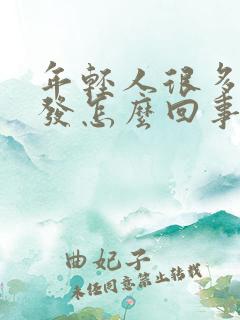 年輕人很多
發怎麼回事
曲妃子
未經同意禁止轉載